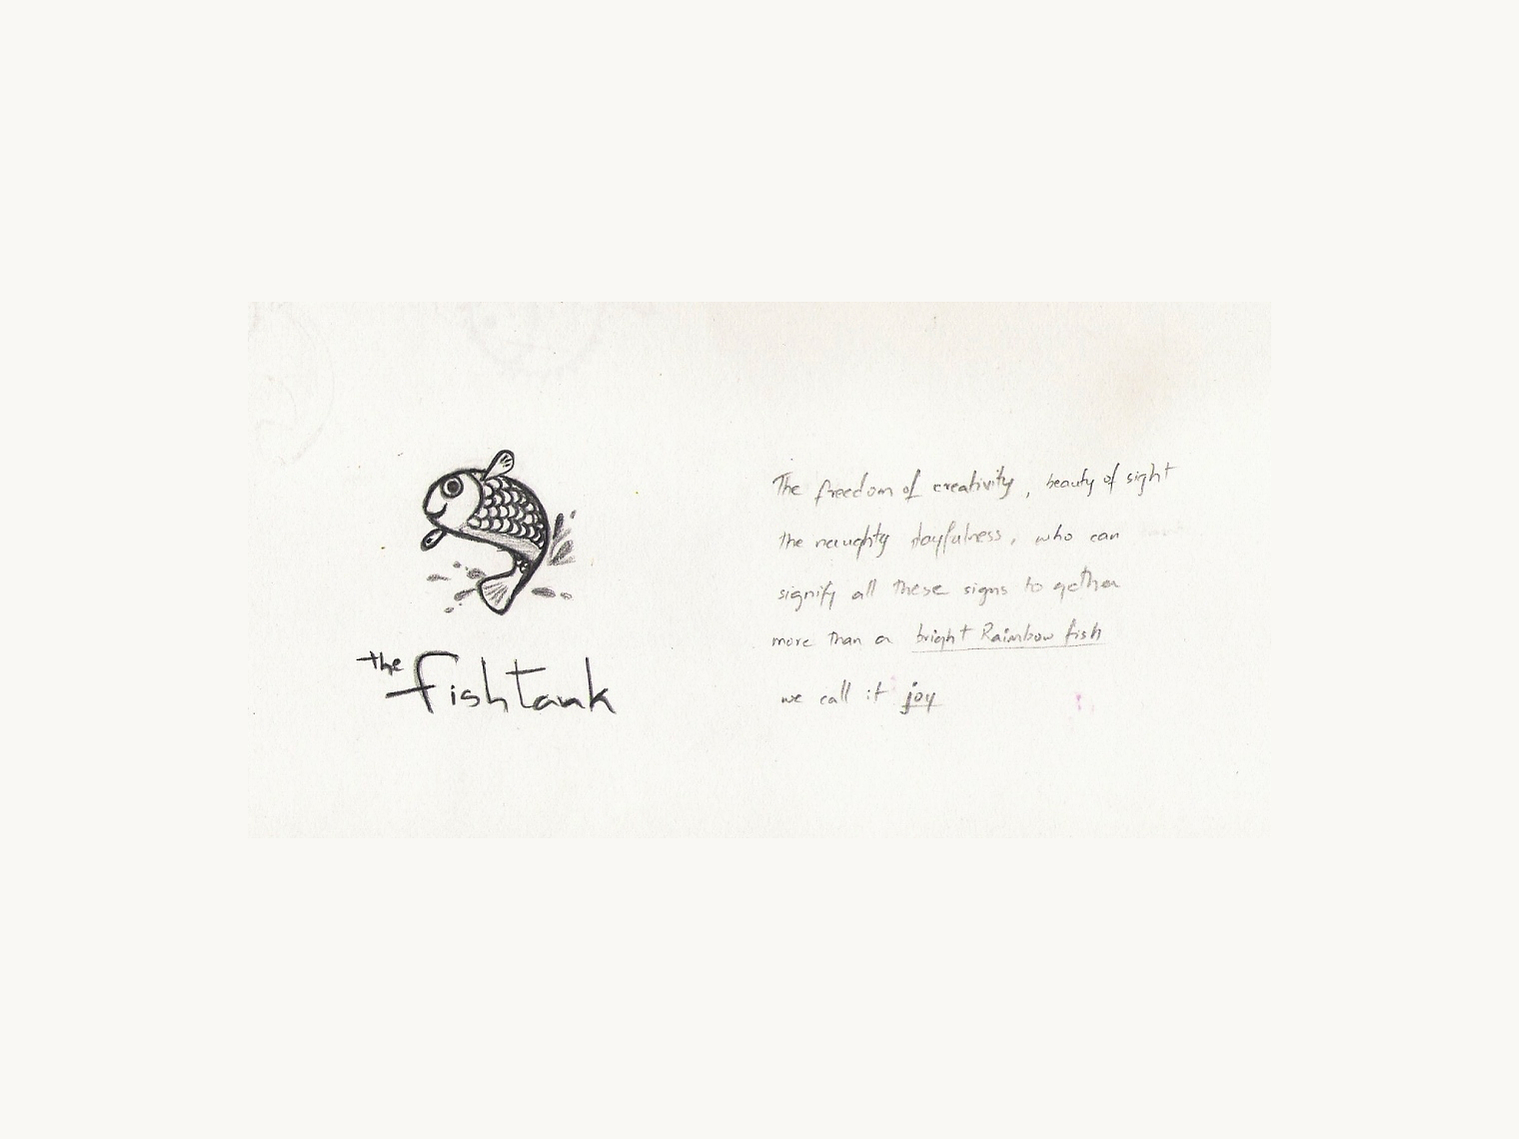 the
fishtank
The freedom of creativity, beauty of sight
the naughty playfulness, who can
signify all these signs to gether
more than a bright Rainbow fish
we call it joy